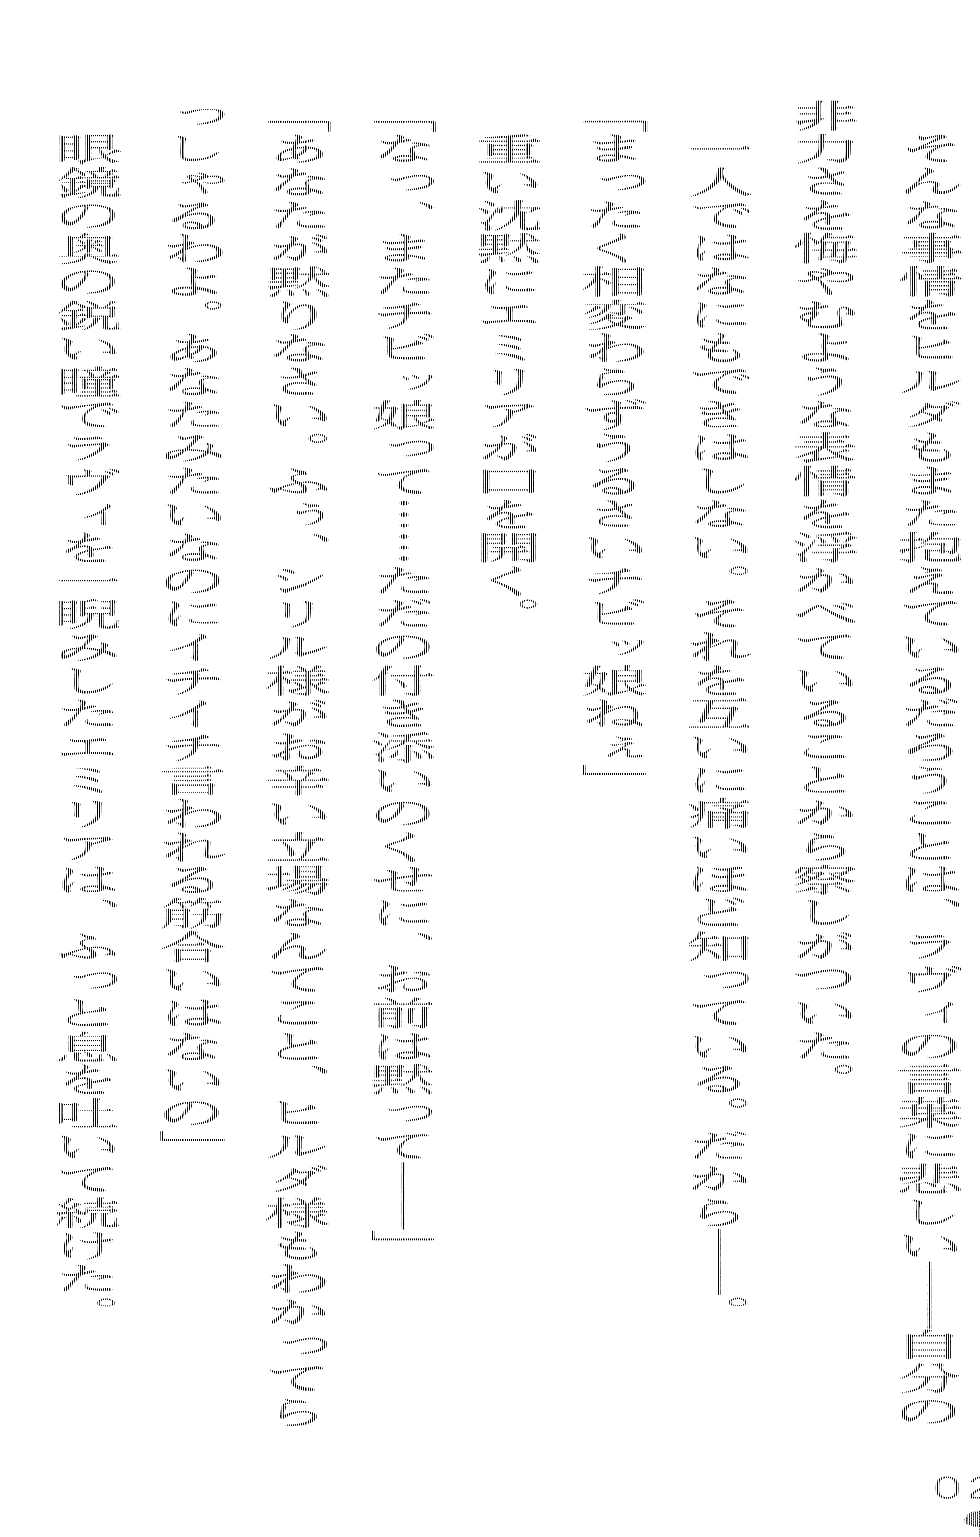 そんな事情をヒルダもまた抱えているだろうことは、ラヴィの言葉に悲しい――自分の
非力さを悔やむような表情を浮かべていることから察しがついた。
一人ではなにもできはしない。それを互いに痛いほど知っている。だから――。
「まったく相変わらずうるさいチビッ娘ねぇ」
重い沈黙にエミリアが口を開く。
「なっ、またチビッ娘って……ただの付き添いのくせに、お前は黙って――」
「あなたが黙りなさい。ふぅ、シリル様がお辛い立場なんてこと、ヒルダ様もわかってら
っしゃるわよ。あなたみたいなのにイチイチ言われる筋合いはないの」
眼鏡の奥の鋭い瞳でラヴィを一睨みしたエミリアは、ふっと息を吐いて続けた。